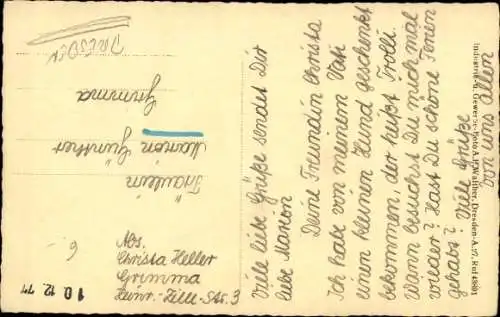 Viele liebe Grüße sendet Dir
liebe Marion
Deine Freundin Christa
Ich habe von meinem Vati
einen kleinen Hund geschenkt
bekommen, der heißt Trolli.
Wann besuchst Du mich mal
wieder? Hast Du schöne Ferien
gehabt? Viele Grüße
von uns allen
DRESDEN
Fräulein
Marion Günther
Grimma
Abs.
Christa Heller
Grimma
Heinr.-Zille-Str. 3
6
10.12.77
Industrie- u. Gewerbe-Foto A. P. Walther, Dresden-A. 27, Ruf 48801